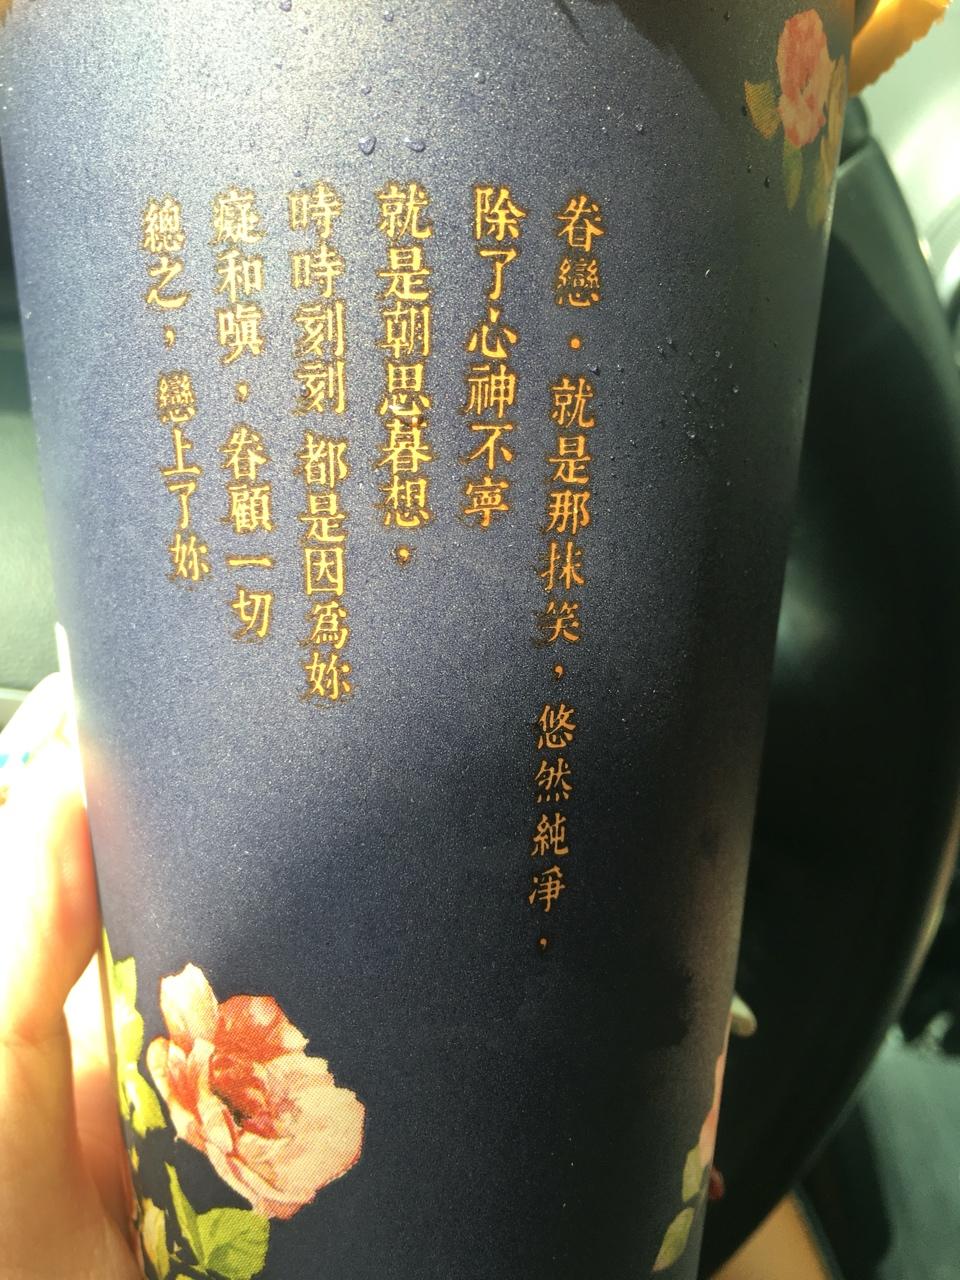 眷戀．就是那抹笑，悠然純凈，
除了心神不寧
就是朝思暮想，
時時刻刻 都是因為妳
癡和嗔，眷顧一切
總之，戀上了妳